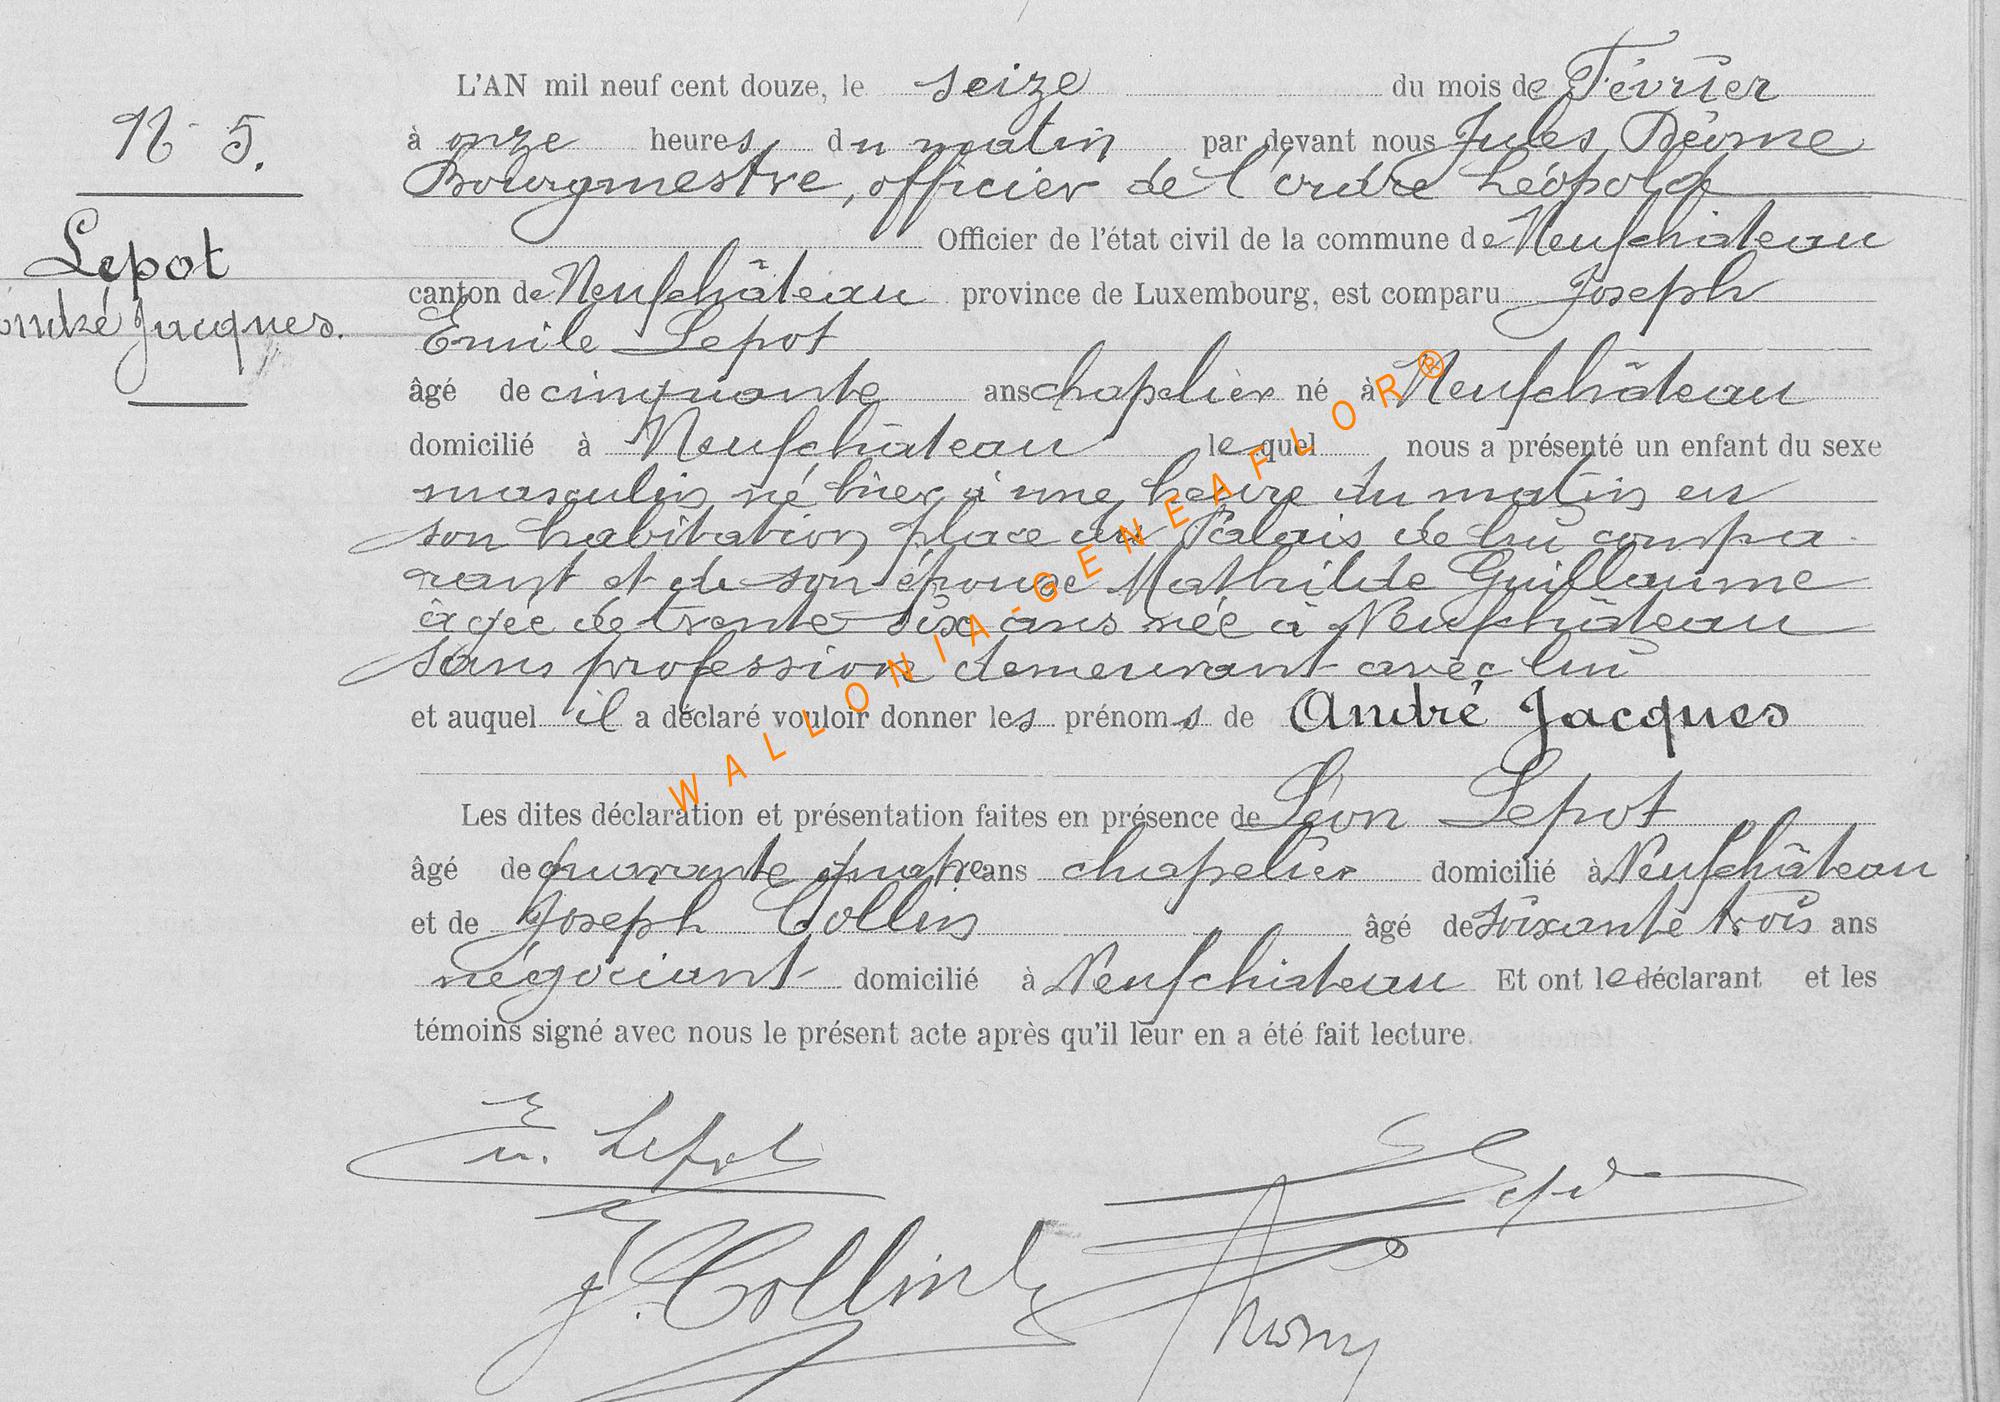 L'AN mil neuf cent douze, le seize du mois de Février
N° 5.
à onze heures du matin par devant nous Jules
Bourgmestre, officier de l'ordre Léopold
Officier de l'état civil de la commune de Neufchâteau
Lepot
canton de Neufchâteau province de Luxembourg, est comparu Joseph
André Jacques.
Emile Lepot
âgé de cinquante ans chapelier né à Neufchâteau
domicilié à Neufchâteau lequel nous a présenté un enfant du sexe
masculin né hier à une heure du matin en
son habitation place du Palais de lui compa-
rant et de son épouse Mathilde Guillaume
âgée de trente six ans née à Neufchâteau
sans profession demeurant avec lui
et auquel il a déclaré vouloir donner les prénoms de André Jacques
Les dites déclaration et présentation faites en présence de Léon Lepot
âgé de quarante quatre ans chapelier domicilié à Neufchâteau
et de Joseph Collin âgé de soixante trois ans
négociant domicilié à Neufchâteau Et ont le déclarant et les
témoins signé avec nous le présent acte après qu'il leur en a été fait lecture.
Em. Lepot
J. Collin
WALLONIA-GENEAFLOR®